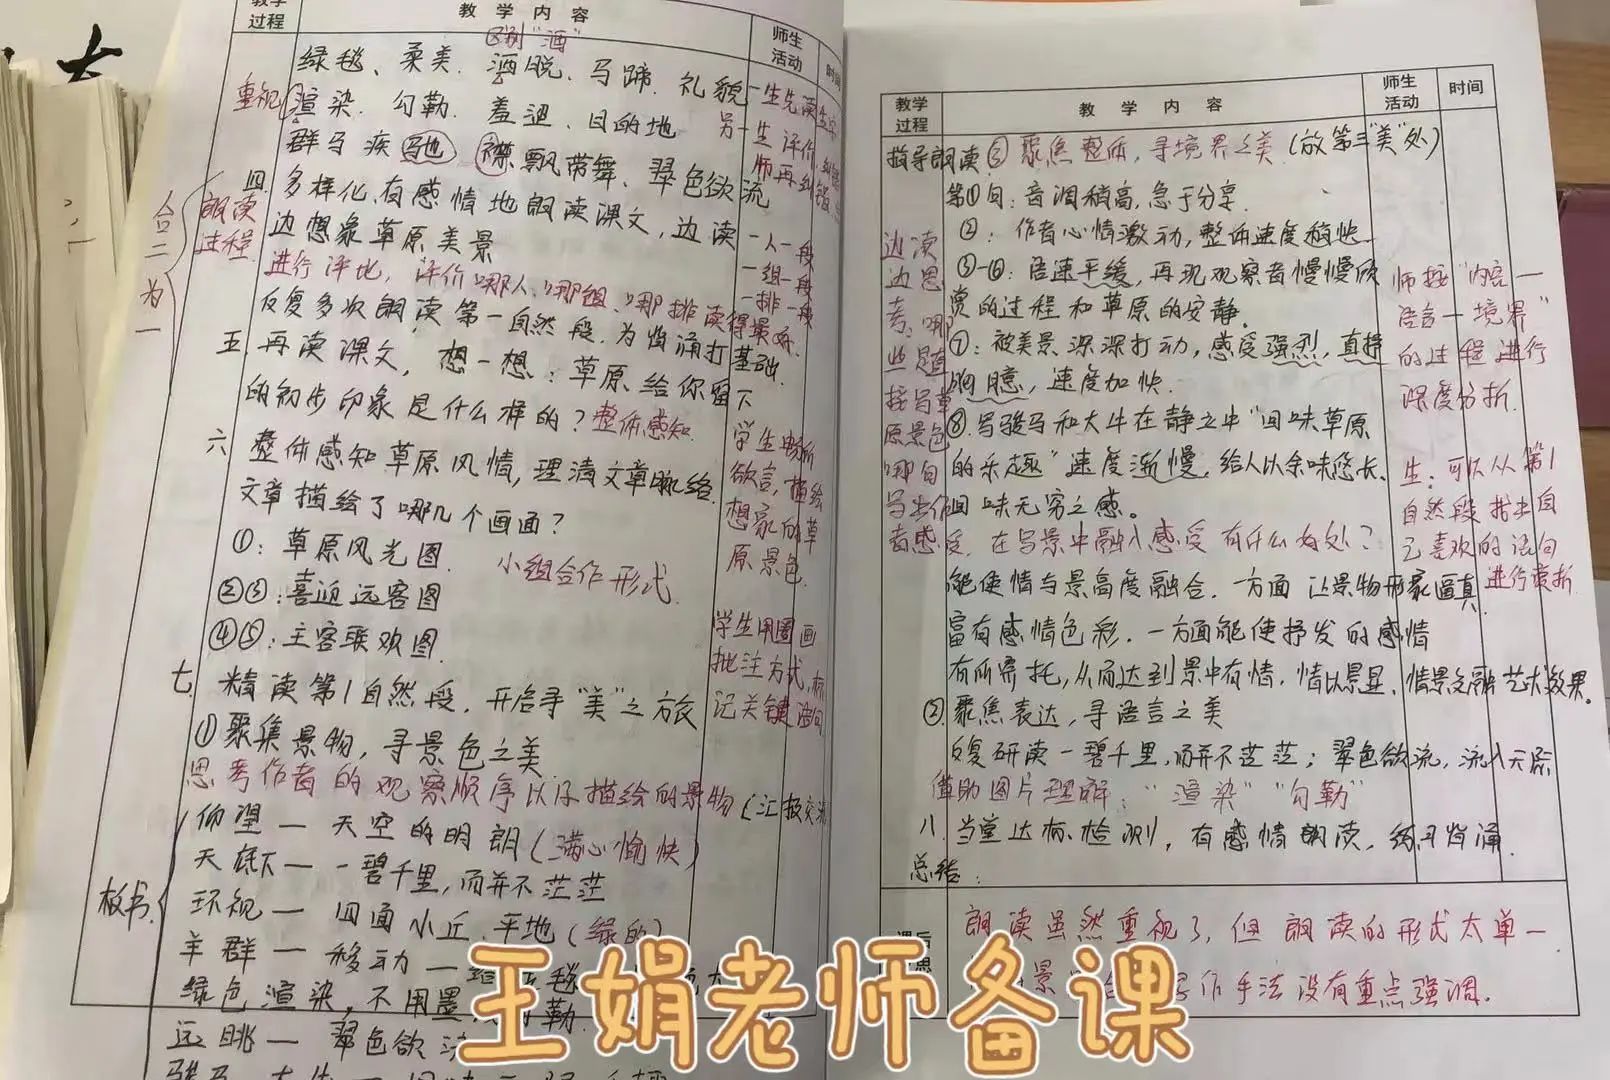 教学
过程
教 学 内 容
师生
活动
时间
区别"酒"
绿毯、柔美、洒脱、马蹄、礼貌
重视
渲染、勾勒、羞涩、目的地
群马疾驰 襟飘带舞、翠色欲流
一生先读生字
另一生评价,纠错
师再纠错
合二为一
朗读
过程
四 多样化,有感情地朗读课文,边读
边想象草原美景
进行评比,评价"哪人","哪组","哪排读得最好.
反复多次朗读第一自然段,为背诵打基础.
一人一段
一组一段
一排一段
五 再读课文,想一想:草原给你留下
的初步印象是什么样的?整体感知.
六 整体感知草原风情,理清文章脉络.
文章描绘了哪几个画面?
学生畅所
欲言,描绘
想象的草
原景色.
①:草原风光图.
小组合作形式.
②③:喜迎远客图
④⑤:主客联欢图.
学生用圈画
批注方式,标
记关键语句
七 精读第1自然段,开启寻"美"之旅
①聚焦景物,寻景色之美
思考作者的观察顺序以及描绘的景物(汇报交流
板书.
仰望— 天空的明朗(满心愉快)
天底下— 一碧千里,而并不茫茫
环视— 四面小丘.平地(绿的)
羊群— 移动—
绿色渲染,不用墨 勾勒.
远眺— 翠色欲流
骏马、大牛— 回味
教学
过程
教 学 内 容
师生
活动
时间
指导朗读.③聚焦整体,寻境界之美(放第三"美"处)
第①句:音调稍高,急于分享.
②:作者心情激动,整体速度稍快
③-⑥:语速平缓,再现观察者慢慢欣
赏的过程和草原的安静.
⑦:被美景深深打动,感受强烈,直抒
胸臆,速度加快.
⑧.写骏马和大牛在静之中"回味草原
的乐趣"速度渐慢,给人以余味悠长、
回味无穷之感。
边读
边思
考:哪
些是直
接写草
原景色
哪句
写出作
者感受.
在写景中融入感受有什么好处?
师按"内容—
语言—境界"
的过程进行
深度分析.
生:可以从第1
自然段找出自
己喜欢的语句
进行赏析
能使情与景高度融合.一方面让景物形象逼真
富有感情色彩.一方面能使抒发的感情
有所寄托,从而达到景中有情,情以景显、情景交融艺术效果。
②聚焦表达,寻语言之美
反复研读一碧千里,而并不茫茫;翠色欲流,流入天际
借助图片理解:"渲染""勾勒"
八.当堂达标检测,有感情朗读,练习背诵.
总结:
朗读虽然重视了,但朗读的形式太单一
手法没有重点强调.
王娟老师备课